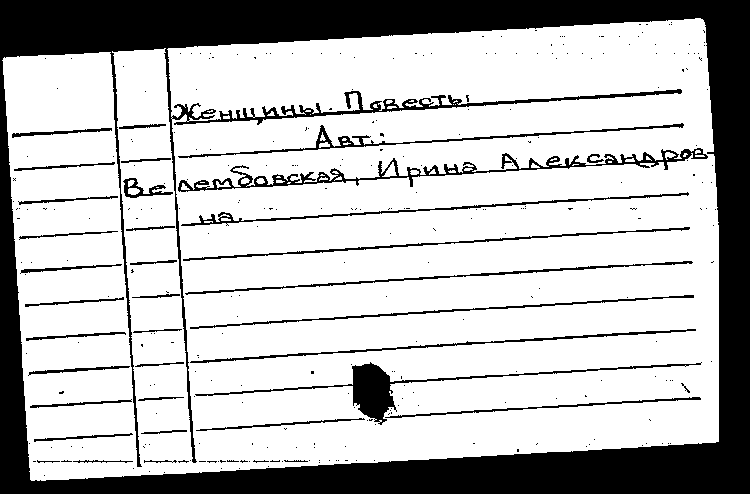 Женщины. Повесть.
Авт.:
Велембовская, Ирина Александров-
на.